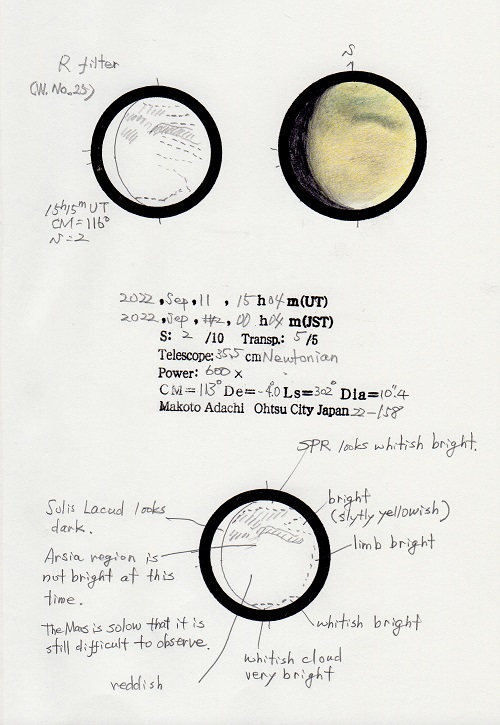 S
R filter
(W. No. 25)
15h15m UT
CM=116°
S=2
2022, Sep, 11 , 15 h 04 m(UT)
2022, Sep, 12, 00 h 04 m(JST)
S: 2 /10 Transp.: 5/5
Telescope: 35.5 cm Newtonian
Power: 600 x
CM=113° De=-4.0 Ls=302° Dia=10".4
Makoto Adachi Ohtsu City Japan 22-158
SPR looks whitish bright.
Solis Lacud looks
dark.
bright
(slytly yellowish)
limb bright
Arsia region is
not bright at this
time.
The Mars is solow that it is
still difficult to observe.
whitish bright
whitish cloud
very bright
reddish